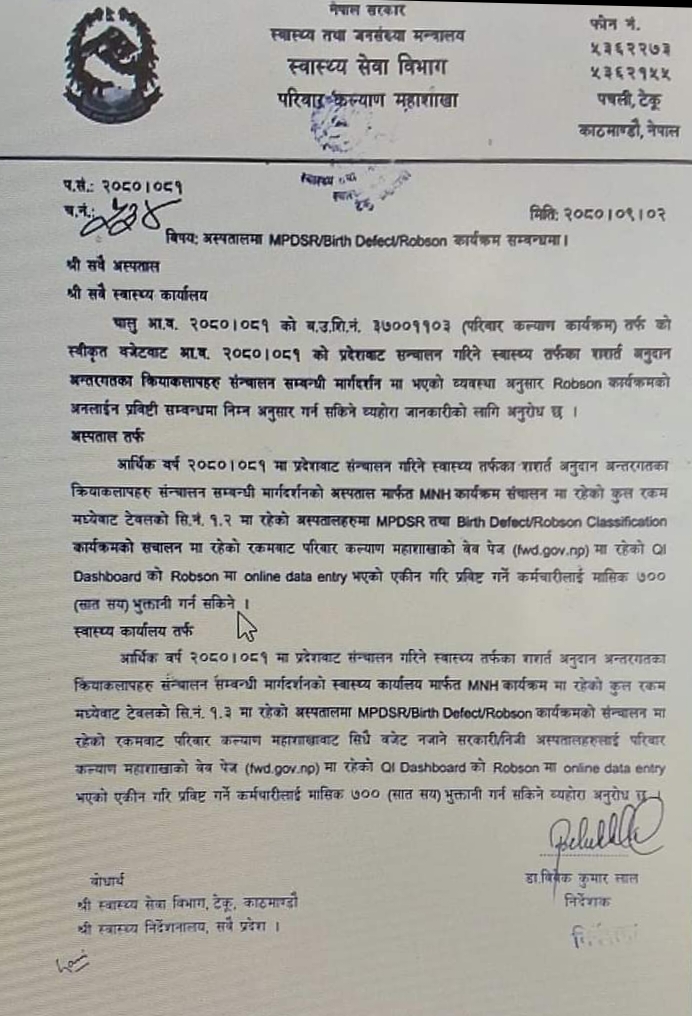 नेपाल सरकार
स्वास्थ्य तथा जनसंख्या मन्त्रालय
स्वास्थ्य सेवा विभाग
परिवार कल्याण महाशाखा
फोन नं.
५३६२२७३
५३६२१५५
पचली, टेकू
काठमाण्डौ, नेपाल
प.सं.: २०८०।०८१
च.नं.:
मिति: २०८०।०९।०२
विषय: अस्पतालमा MPDSR/Birth Defect/Robson कार्यक्रम सम्बन्धमा।
श्री सबै अस्पताल
श्री सबै स्वास्थ्य कार्यालय
चालु आ.व. २०८०।०८१ को ब.उ.शि.नं. ३७००११०३ (परिवार कल्याण कार्यक्रम) तर्फ को
स्वीकृत वजेटवाट आ.व. २०८०।०८१ को प्रदेशवाट सन्चालन गरिने स्वास्थ्य तर्फका शशर्त अनुदान
अन्तरगतका क्रियाकलापहरु संन्चालन सम्बन्धी मार्गदर्शन मा भएको व्यवस्था अनुसार Robson कार्यक्रमको
अनलाईन प्रविष्टी सम्बन्धमा निम्न अनुसार गर्न सकिने व्यहोरा जानकारीको लागि अनुरोध छ ।
अस्पताल तर्फ
आर्थिक वर्ष २०८०।०८१ मा प्रदेशवाट संन्चालन गरिने स्वास्थ्य तर्फका शशर्त अनुदान अन्तरगतका
क्रियाकलापहरु संन्चालन सम्बन्धी मार्गदर्शनको अस्पताल मार्फत MNH कार्यक्रम संचालन मा रहेको कुल रकम
मध्येवाट टेवलको सि.नं. १.२ मा रहेको अस्पतालहरुमा MPDSR तथा Birth Defect/Robson Classification
कार्यक्रमको सचालन मा रहेको रकमबाट परिवार कल्याण महाशाखाको वेव पेज (fwd.gov.np) मा रहेको QI
Dashboard को Robson मा online data entry भएको एकीन गरि प्रविष्ट गर्ने कर्मचारीलाई मासिक ७००
(सात सय) भुक्तानी गर्न सकिने ।
स्वास्थ्य कार्यालय तर्फ
आर्थिक वर्ष २०८०।०८१ मा प्रदेशवाट संन्चालन गरिने स्वास्थ्य तर्फका शशर्त अनुदान अन्तरगतका
क्रियाकलापहरु संन्चालन सम्बन्धी मार्गदर्शनको स्वास्थ्य कार्यालय मार्फत MNH कार्यक्रम मा रहेको कुल रकम
मध्येवाट टेवलको सि.नं. १.३ मा रहेको अस्पतालमा MPDSR/Birth Defect/Robson कार्यक्रमको संन्चालन मा
रहेको रकमवाट परिवार कल्याण महाशाखावाट सिधै वजेट नजाने सरकारी/निजी अस्पतालहरुलाई परिवार
कल्याण महाशाखाको वेव पेज (fwd.gov.np) मा रहेको QI Dashboard को Robson मा online data entry
भएको एकीन गरि प्रविष्ट गर्ने कर्मचारीलाई मासिक ७०० (सात सय) भुक्तानी गर्न सकिने व्यहोरा अनुरोध छ ।
डा.विबेक कुमार लाल
निर्देशक
वोधार्थ
श्री स्वास्थ्य सेवा विभाग, टेकू, काठमाण्डौ
श्री स्वास्थ्य निर्देशनालय, सवै प्रदेश ।